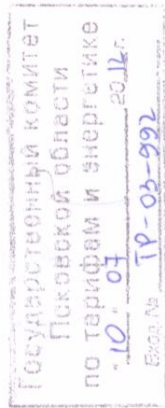 Государственный комитет
Псковской области
по тарифам и энергетике
"10" 07 2012 г.
Вход. № ТР-03-992